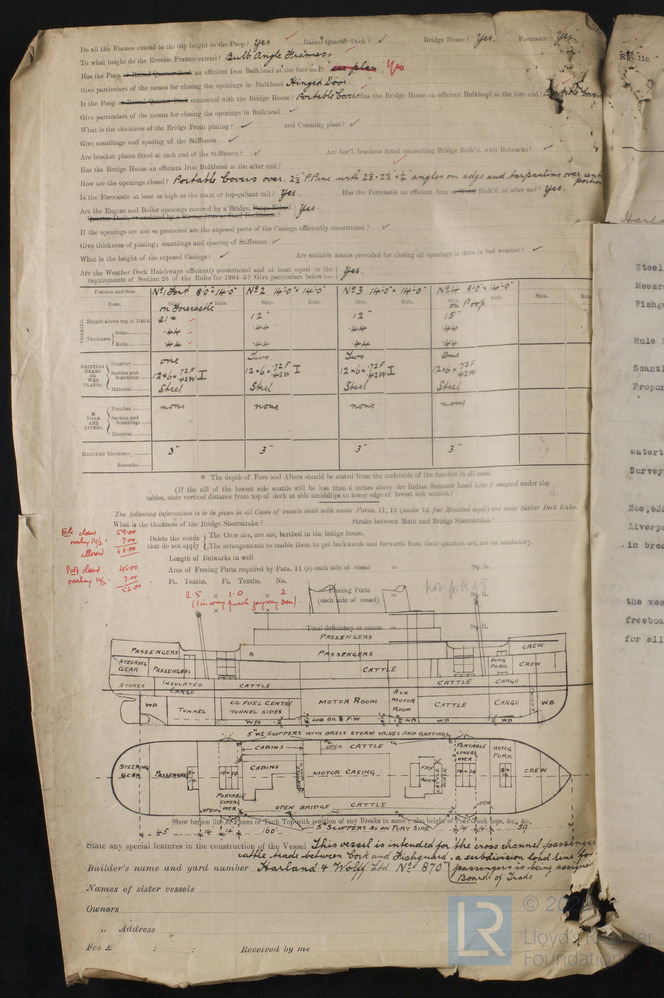 Do all the Frames extend to the top height to the Poop? Yes Raised Quarter Deck? ✓ Bridge House? Yes. Forecastle? Yes.
To what height do the Reverse Frames extend? Bulb Angle Frames.
Has the Poop or Raised Quarter Deck an efficient Iron Bulkhead at the fore end? see plan Yes
Give particulars of the means for closing the openings in Bulkhead Hinged Door
Is the Poop or Raised Quarter Deck connected with the Bridge House? Portable Covers Has the Bridge House an efficient Iron Bulkhead at the fore end?
Give particulars of the means for closing the openings in Bulkhead ✓
What is the thickness of the Bridge Front plating? ✓ and Coaming plate? ✓
Give scantlings and spacing of the Stiffeners ✓
Are bracket plates fitted at each end of the Stiffeners? ✓ Are hor'l. brackets fitted connecting Bridge Bulk'd. with Bulwarks? ✓
Has the Bridge House an efficient Iron Bulkhead at the after end?
How are the openings closed? Portable Covers over. 2½" P.Pine with 2½ × 2½ × ¼" angles on edge and tarpaulins over
Is the Forecastle at least as high as the main or top-gallant rail? Yes. Has the Forecastle an efficient Iron Bulk'd. at after end? yes.
Are the Engine and Boiler openings covered by a Bridge, Yes.
If the openings are not so protected are the exposed parts of the Casings efficiently constructed? ✓
Give thickness of plating; scantlings and spacing of Stiffeners ✓
What is the height of the exposed Casings? ✓ Are suitable means provided for closing all openings in them in bad weather? ✓
Are the Weather Deck Hatchways efficiently constructed and at least equal to the requirements of Section 28 of the Rules for 1904-5? Give particulars below:— Yes.
Position and Size. No 1 Fore 8·0 × 14·0 No 2 14·0 × 14·0 No 3 14·0 × 14·0 No 4 8·0 × 14·0
Item. on Forecastle Ship. Rule. Ship. Rule. on Poop Ship. Rule.
COAMING Height above top of DECK 21" 12" 12" 15"
Thickness Sides .44 .44 .44 .44
Ends .44 .44 .44 .44
SHIFTING BEAMS OR WEB PLATES. Number one Two Two One
Section and Scantlings 12 × 6 × .72F .42W I 12 × 6 × .72F .42W I 12 × 6 × .72F .42W I 12 × 6 × .72F .42W
Material Steel Steel Steel Steel
* FORE AND AFTERS. Number none none none none
Section and Scantlings
Material
HATCHES Thickness 3" 3" 3" 3"
Remarks
* The depth of Fore and Afters should be stated from the underside of the hatches in all cases.
(If the sill of the lowest side scuttle will be less than 6 inches above the Indian Summer Load Line if assigned under the
tables, state vertical distance from top of deck at side amidships to lower edge of lowest side scuttle.)
The following information is to be given in all Cases of vessels dealt with under Paras. 11, 12 (under 15 feet Moulded depth) and under Shelter Deck Rules.
What is the thickness of the Bridge Sheerstrake? Strake between Main and Bridge Sheerstrakes?
Delete the words that do not apply
The Crew are, are not, berthed in the bridge house.
The arrangements to enable them to get backwards and forwards from their quarters are, are not satisfactory.
Length of Bulwarks in well
Area of Freeing Ports required by Para. 11 (e) each side of vessel = Sq. ft.
Ft. Tenths. Ft. Tenths. No.
2.5 × 1.0 × 2 Freeing Ports (each side of vessel) =
Total deficiency or excess = Sq. ft.
PASSENGERS
PASSENGERS PASSENGERS CREW
STEERING GEAR PASSENGERS CATTLE HUNG PORK CREW
STORES INSULATED CARGO CATTLE CATTLE CARGO
WB TUNNEL OIL FUEL CENTRE TUNNEL SIDES MOTOR ROOM AUX MOTOR ROOM CATTLE CARGO WB
WB LUB OIL & F.W WB WB WB
5" W.I. SCUPPERS WITH BRASS STORM VALVES AND GRATINGS
CABINS OPEN CATTLE PORTABLE COVERS OVER HUNG PORK
STEERING GEAR PASSENGERS CABINS MOTOR CASING FAN ROOM CREW
PORTABLE COVERS OVER
OPEN OPEN BRIDGE CATTLE OPEN
5" SCUPPERS AS ON PORT SIDE
45 14 14 160 14 14 59
State any special features in the construction of the Vessel This vessel is intended for the cross channel passenger
cattle trade between Cork and Fishguard, a subdivision load line for
Builder's name and yard number Harland & Wolff Ltd No 870 passengers is being assigned
Board of Trade
Names of sister vessels
Owners
" Address
Fee £ : : Received by me
LR
Lloyd's Register
Foundation
Steel
Messrs
Fishg
Rule
Scantl
Propor
watert
Survey
Liverpo
in bre
the ves
freeboa
for all